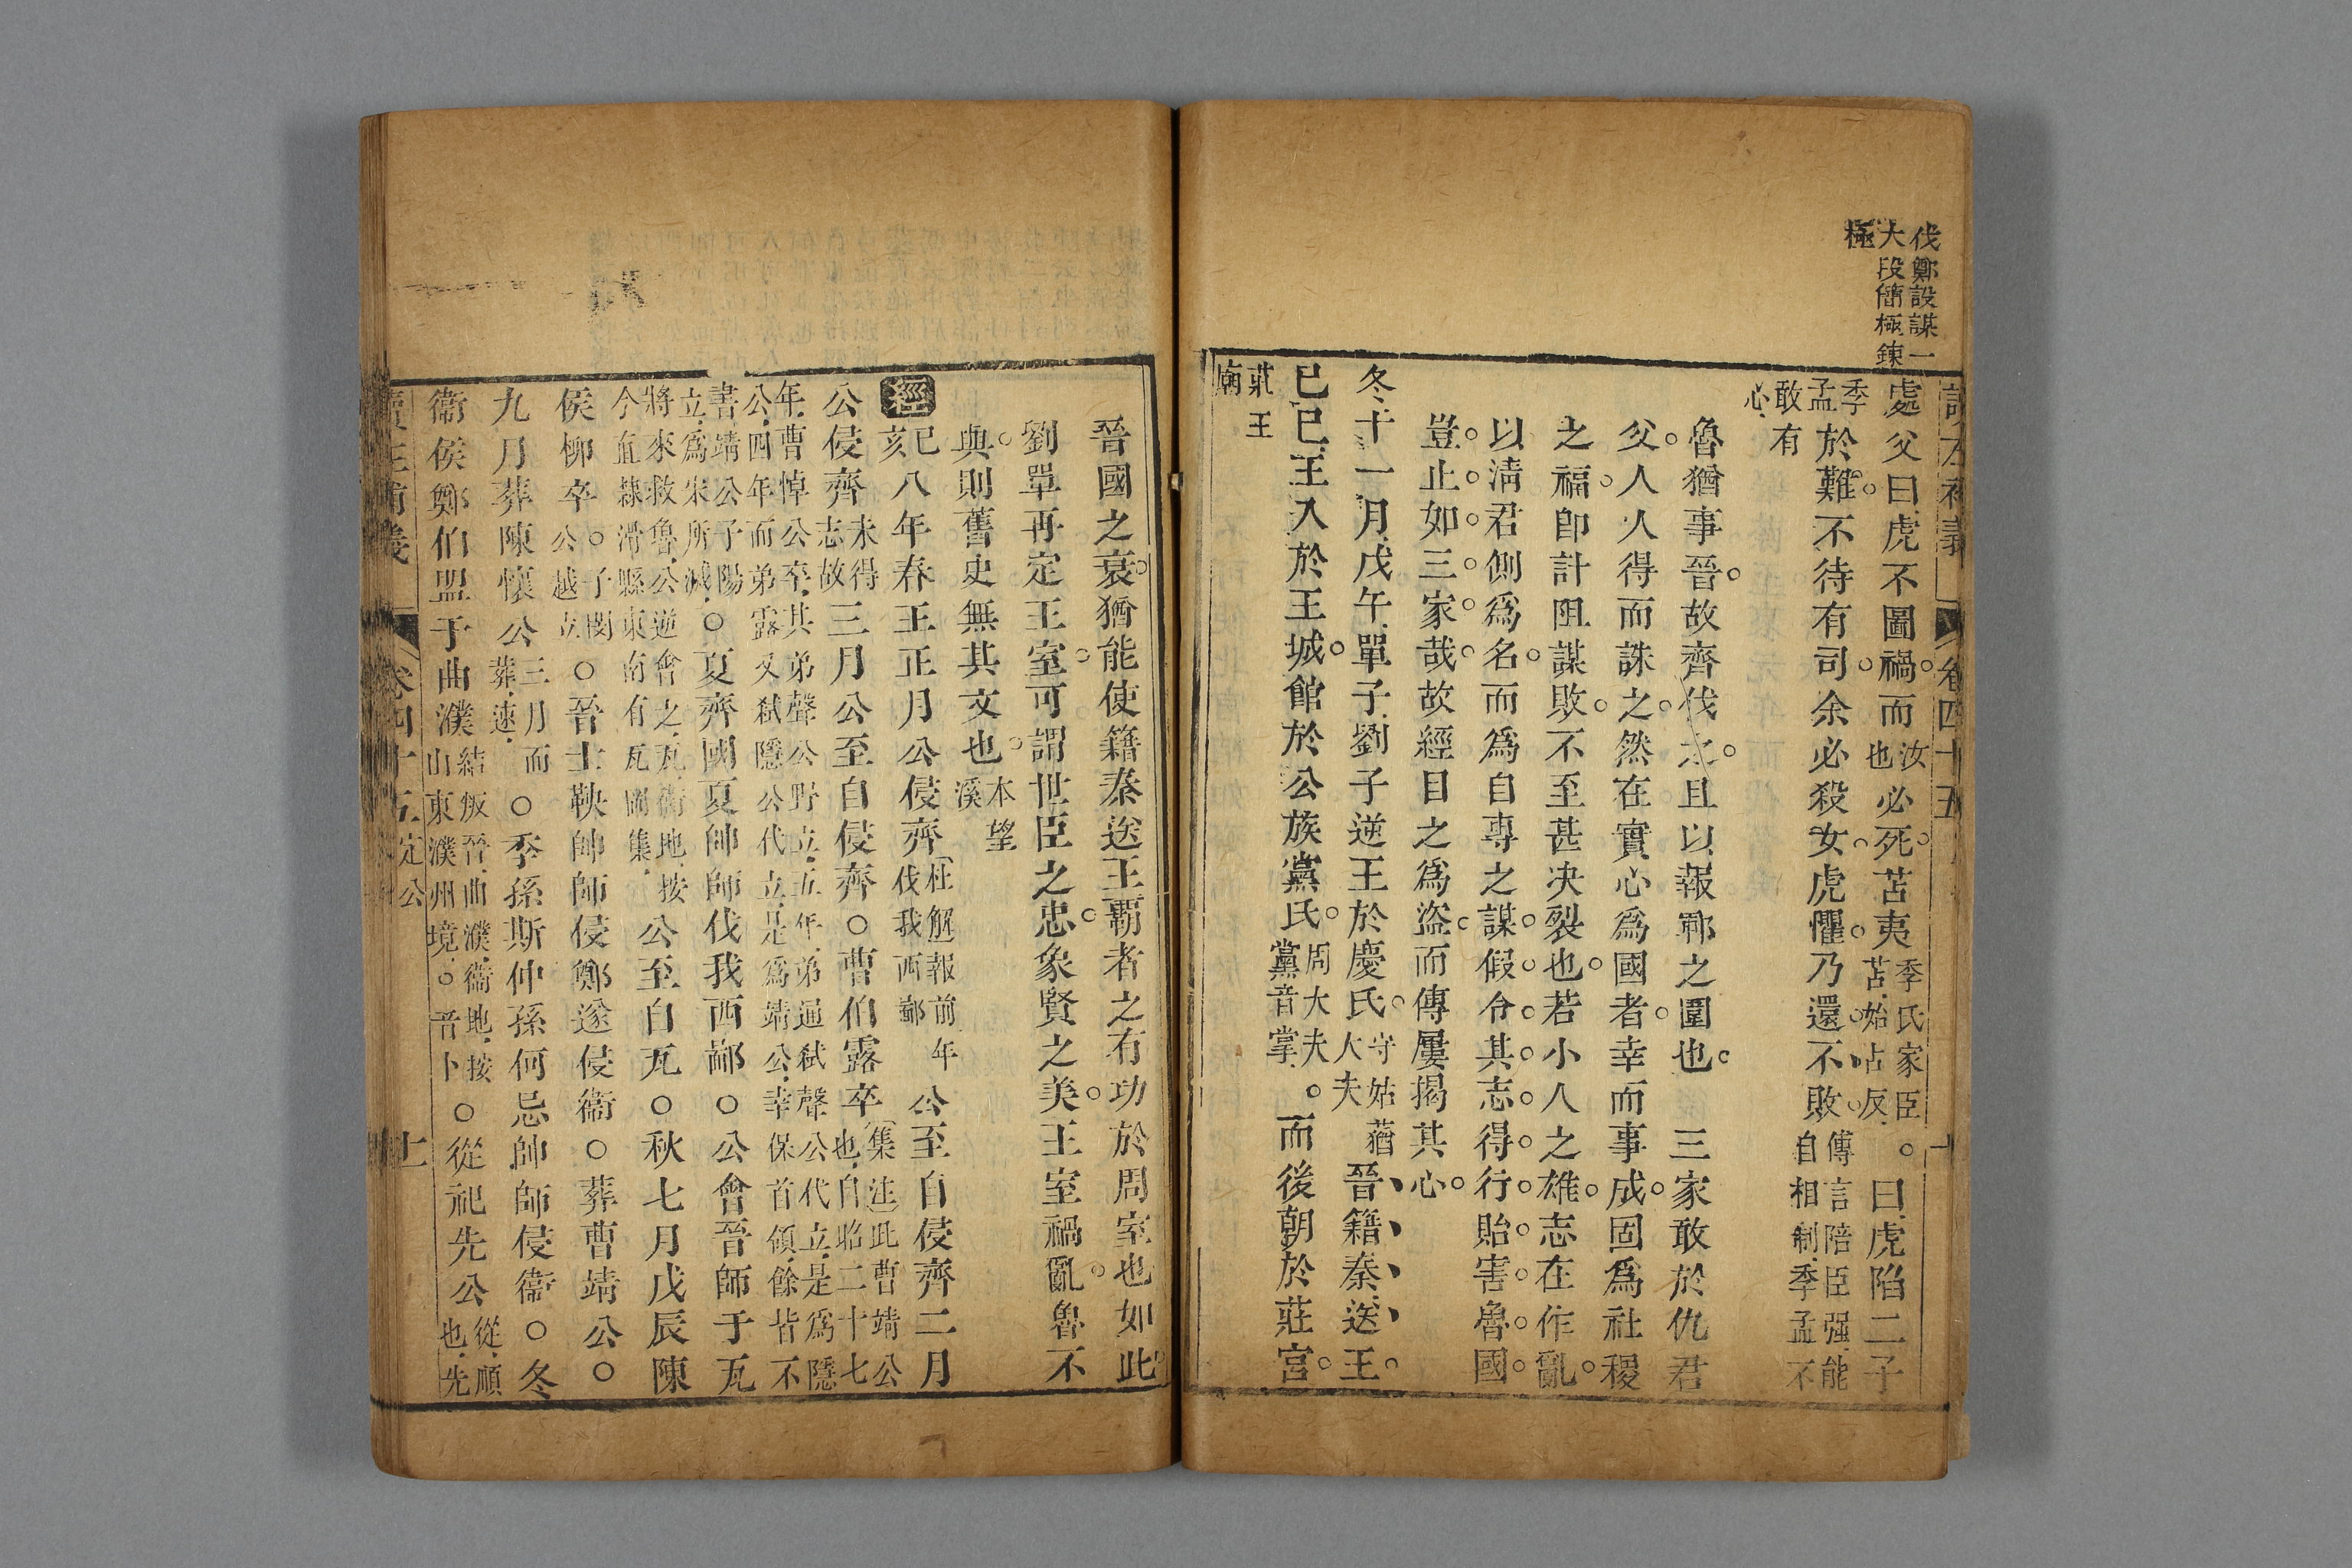 伐鄭設謀一
大段簡極鍊
極
卷四十五
處父曰虎不圖禍而汝也必死苫夷季氏家臣苫始占反。曰虎陷二子
季孟於難不待有司余必殺女虎懼乃還不敗傳言陪臣强能自相制季孟不
敢有
心
魯猶事晉故齊伐之且以報鄆之圍也　三家敢於仇君
父人人得而誅之然在實心爲國者幸而事成固爲社稷
之福卽計阻謀敗不至甚決裂也若小人之雄志在作亂
以淸君側爲名而爲自專之謀假令其志得行貽害魯國
豈止如三家哉故經目之爲盜而傳屢揭其心
冬十一月戊午單子劉子逆王於慶氏守姑蕕大夫晉籍秦送王
己巳王入於王城館於公族黨氏周大夫黨音掌。而後朝於莊宮
莊王
廟
晉國之衰猶能使籍秦送王覇者之有功於周室也如此
劉單再定王室可謂世臣之忠象賢之美王室禍亂魯不
與則舊史無其文也本望溪
經己亥八年春王正月公侵齊杜解報前年伐我西鄙公至自侵齊二月
公侵齊未得志故三月公至自侵齊○曹伯露卒集注此曹靖公也自昭二十七
年曹悼公卒其弟聲公野立五年弟通弑聲公代立是爲隱
公四年而弟露又弑隱公代立是爲靖公幸保首領餘皆不
書靖公子陽立爲宋所滅○夏齊國夏帥師伐我西鄙○公會晉師于瓦
將來救魯公逆會之瓦衛地按今直隸滑縣東南有瓦岡集公至自瓦○秋七月戊辰陳
侯柳卒。子閔公越立○晉士鞅帥師侵鄭遂侵衞○葬曹靖公○
九月葬陳懷公三月而葬速○季孫斯仲孫何忌帥師侵衞○冬
衞侯鄭伯盟于曲濮結叛晉曲濮衞地按山東濮州境。音卜○從祀先公從順也先
讀左補義
卷四十五定公
十一